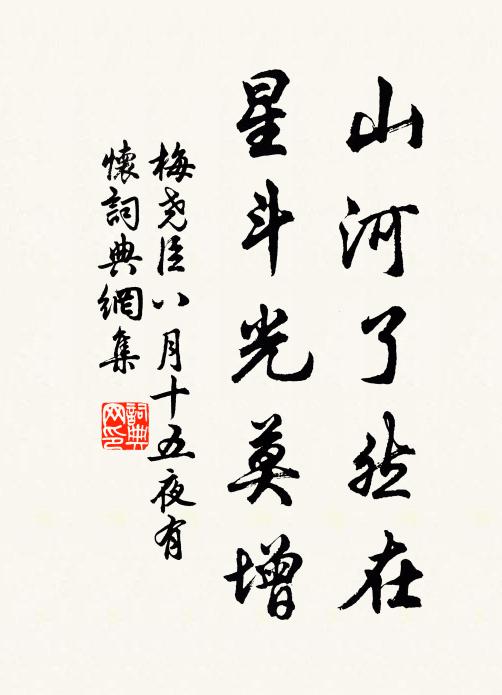 山河了然在
星斗光莫增
梅尧臣八月十五夜有
懷詞典網集
詞典
网印